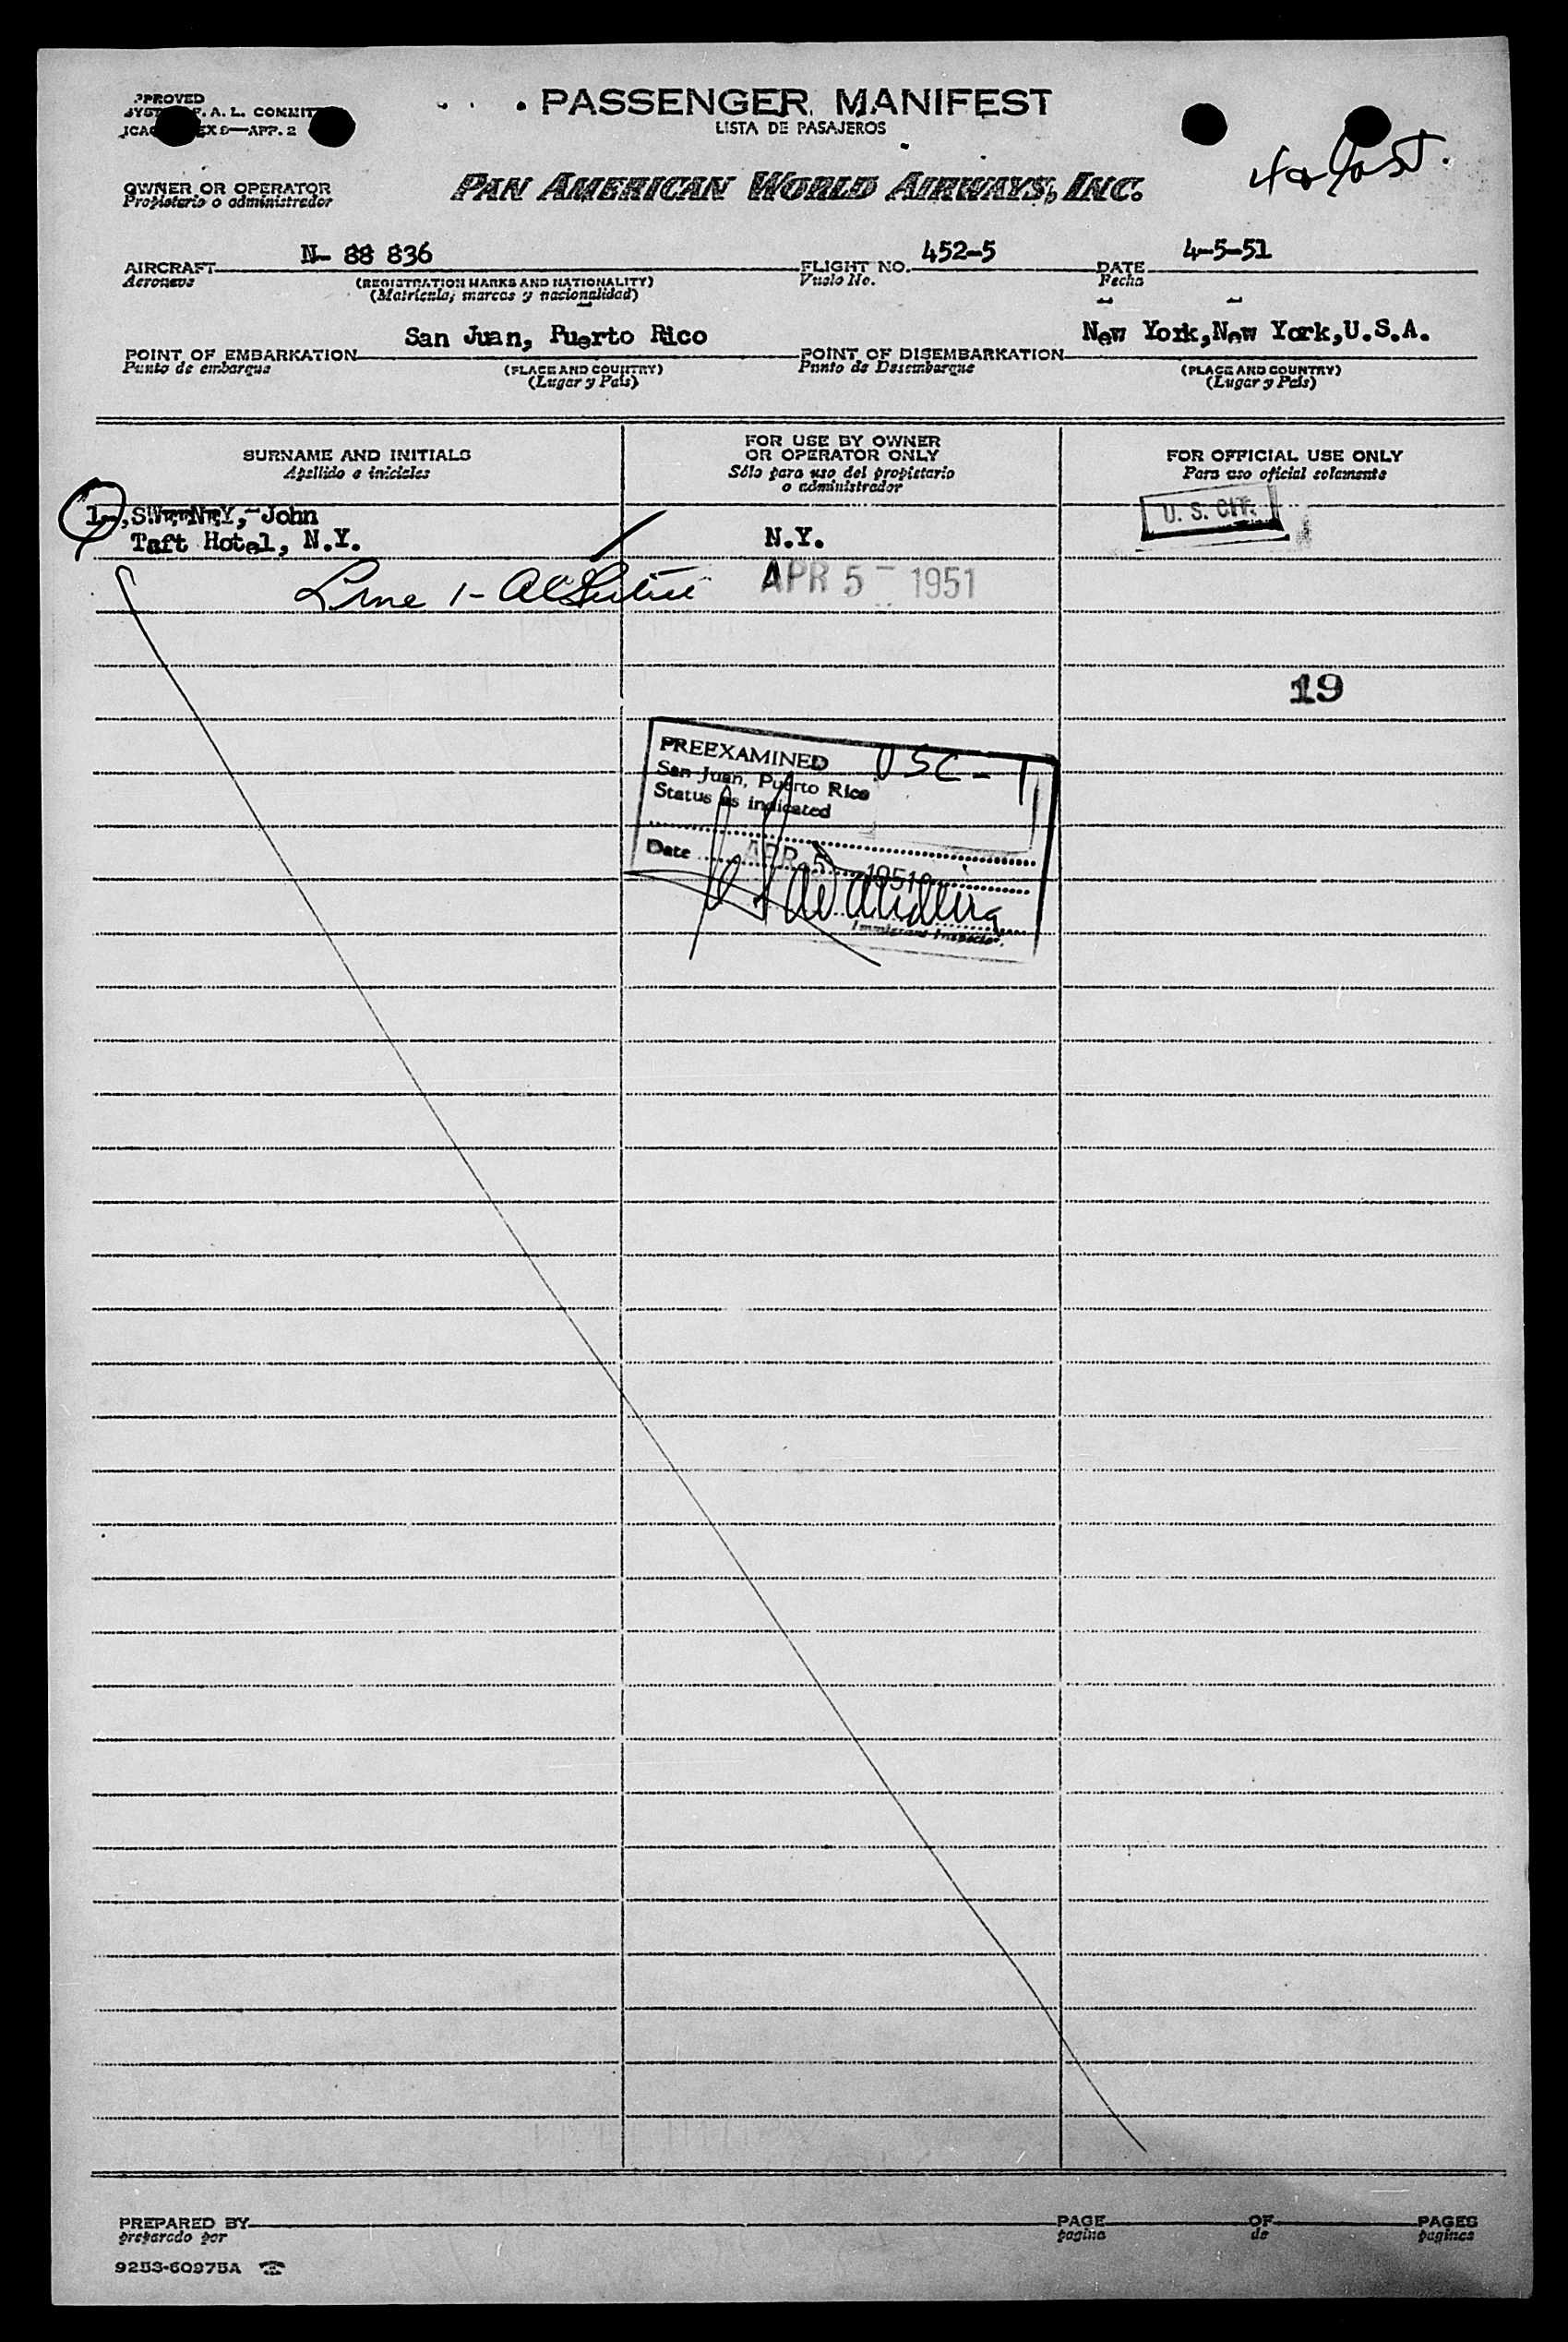 PASSENGER MANIFEST
LISTA DE PASAJEROS
OWNER OR OPERATOR
Propietario o administrador
PAN AMERICAN WORLD AIRWAYS, INC.
AIRCRAFT N- 88 836 FLIGHT NO. 452-5 DATE 4-5-51
Aeronave (REGISTRATION MARKS AND NATIONALITY) Vuelo No. Fecha
(Matricula, marcas y nacionalidad)
POINT OF EMBARKATION San Juan, Puerto Rico POINT OF DISEMBARKATION New York,New York,U.S.A.
Punto de embarque (PLACE AND COUNTRY) Punto de Desembarque (PLACE AND COUNTRY)
(Lugar y País) (Lugar y País)
SURNAME AND INITIALS
Apellido e iniciales
FOR USE BY OWNER
OR OPERATOR ONLY
Sólo para uso del propietario
o administrador
FOR OFFICIAL USE ONLY
Para uso oficial solamente
1-,SWEENEY,-John
Taft Hotel, N.Y.
N.Y.
U. S. CIT.
Line 1-
APR 5 - 1951
19
PREEXAMINED USC-1
San Juan, Puerto Rico
Status as indicated
Date APR 5 1951
Immigrant Inspector.
PREPARED BY PAGE OF PAGES
preparado por pagina de paginas
9253-60975A